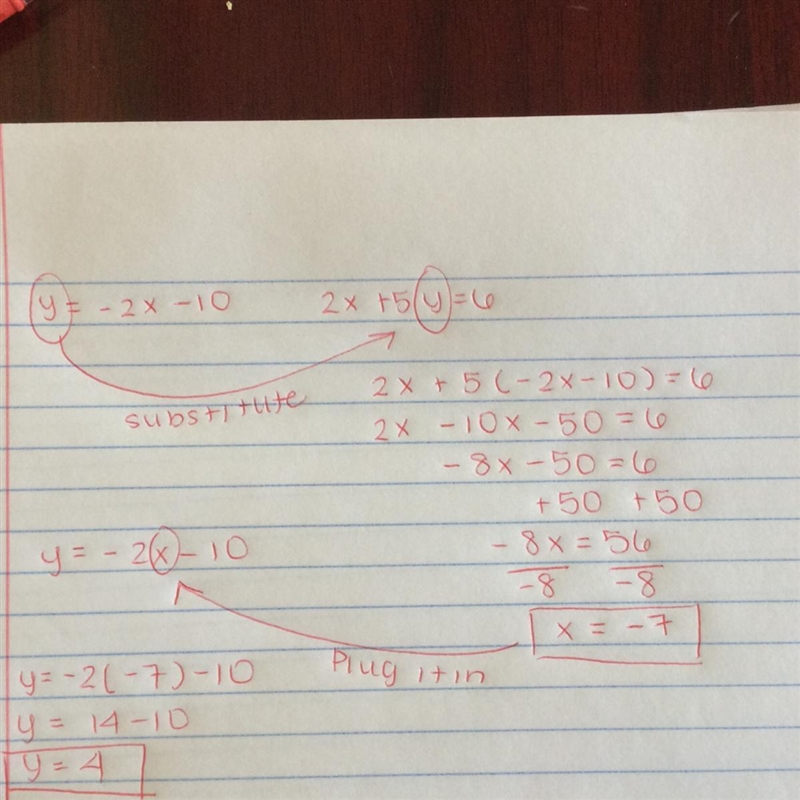 y = -2x -10    2x +5y=6
substitute
2x + 5(-2x-10)=6
2x -10x-50=6
-8x-50=6
+50 +50
-8x=56
-8 -8
x = -7
y = -2x-10
Plug it in
y=-2(-7)-10
y= 14-10
y=4